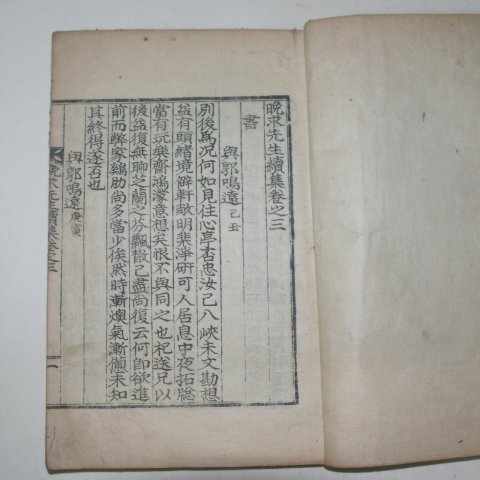 晩求先生續集卷之三
書
與郭鳴遠 己丑
別後爲況何如見住心亭否忠汝已入峽未文勘想
益有頭緖境僻軒敞明窓淨硏可人居息中夜拓牎
當有玩樂齋鴻濛意想矣恨不與同之也祀送兄以
後益復無聊芝蘭之芬飄散已盡尙復云何卽欲進
前而弊家鷄肋尙多當少俟然時漸燠氣漸憊未知
其終得遂否也
與郭鳴遠 庚寅
晩求先生續集卷之三
一